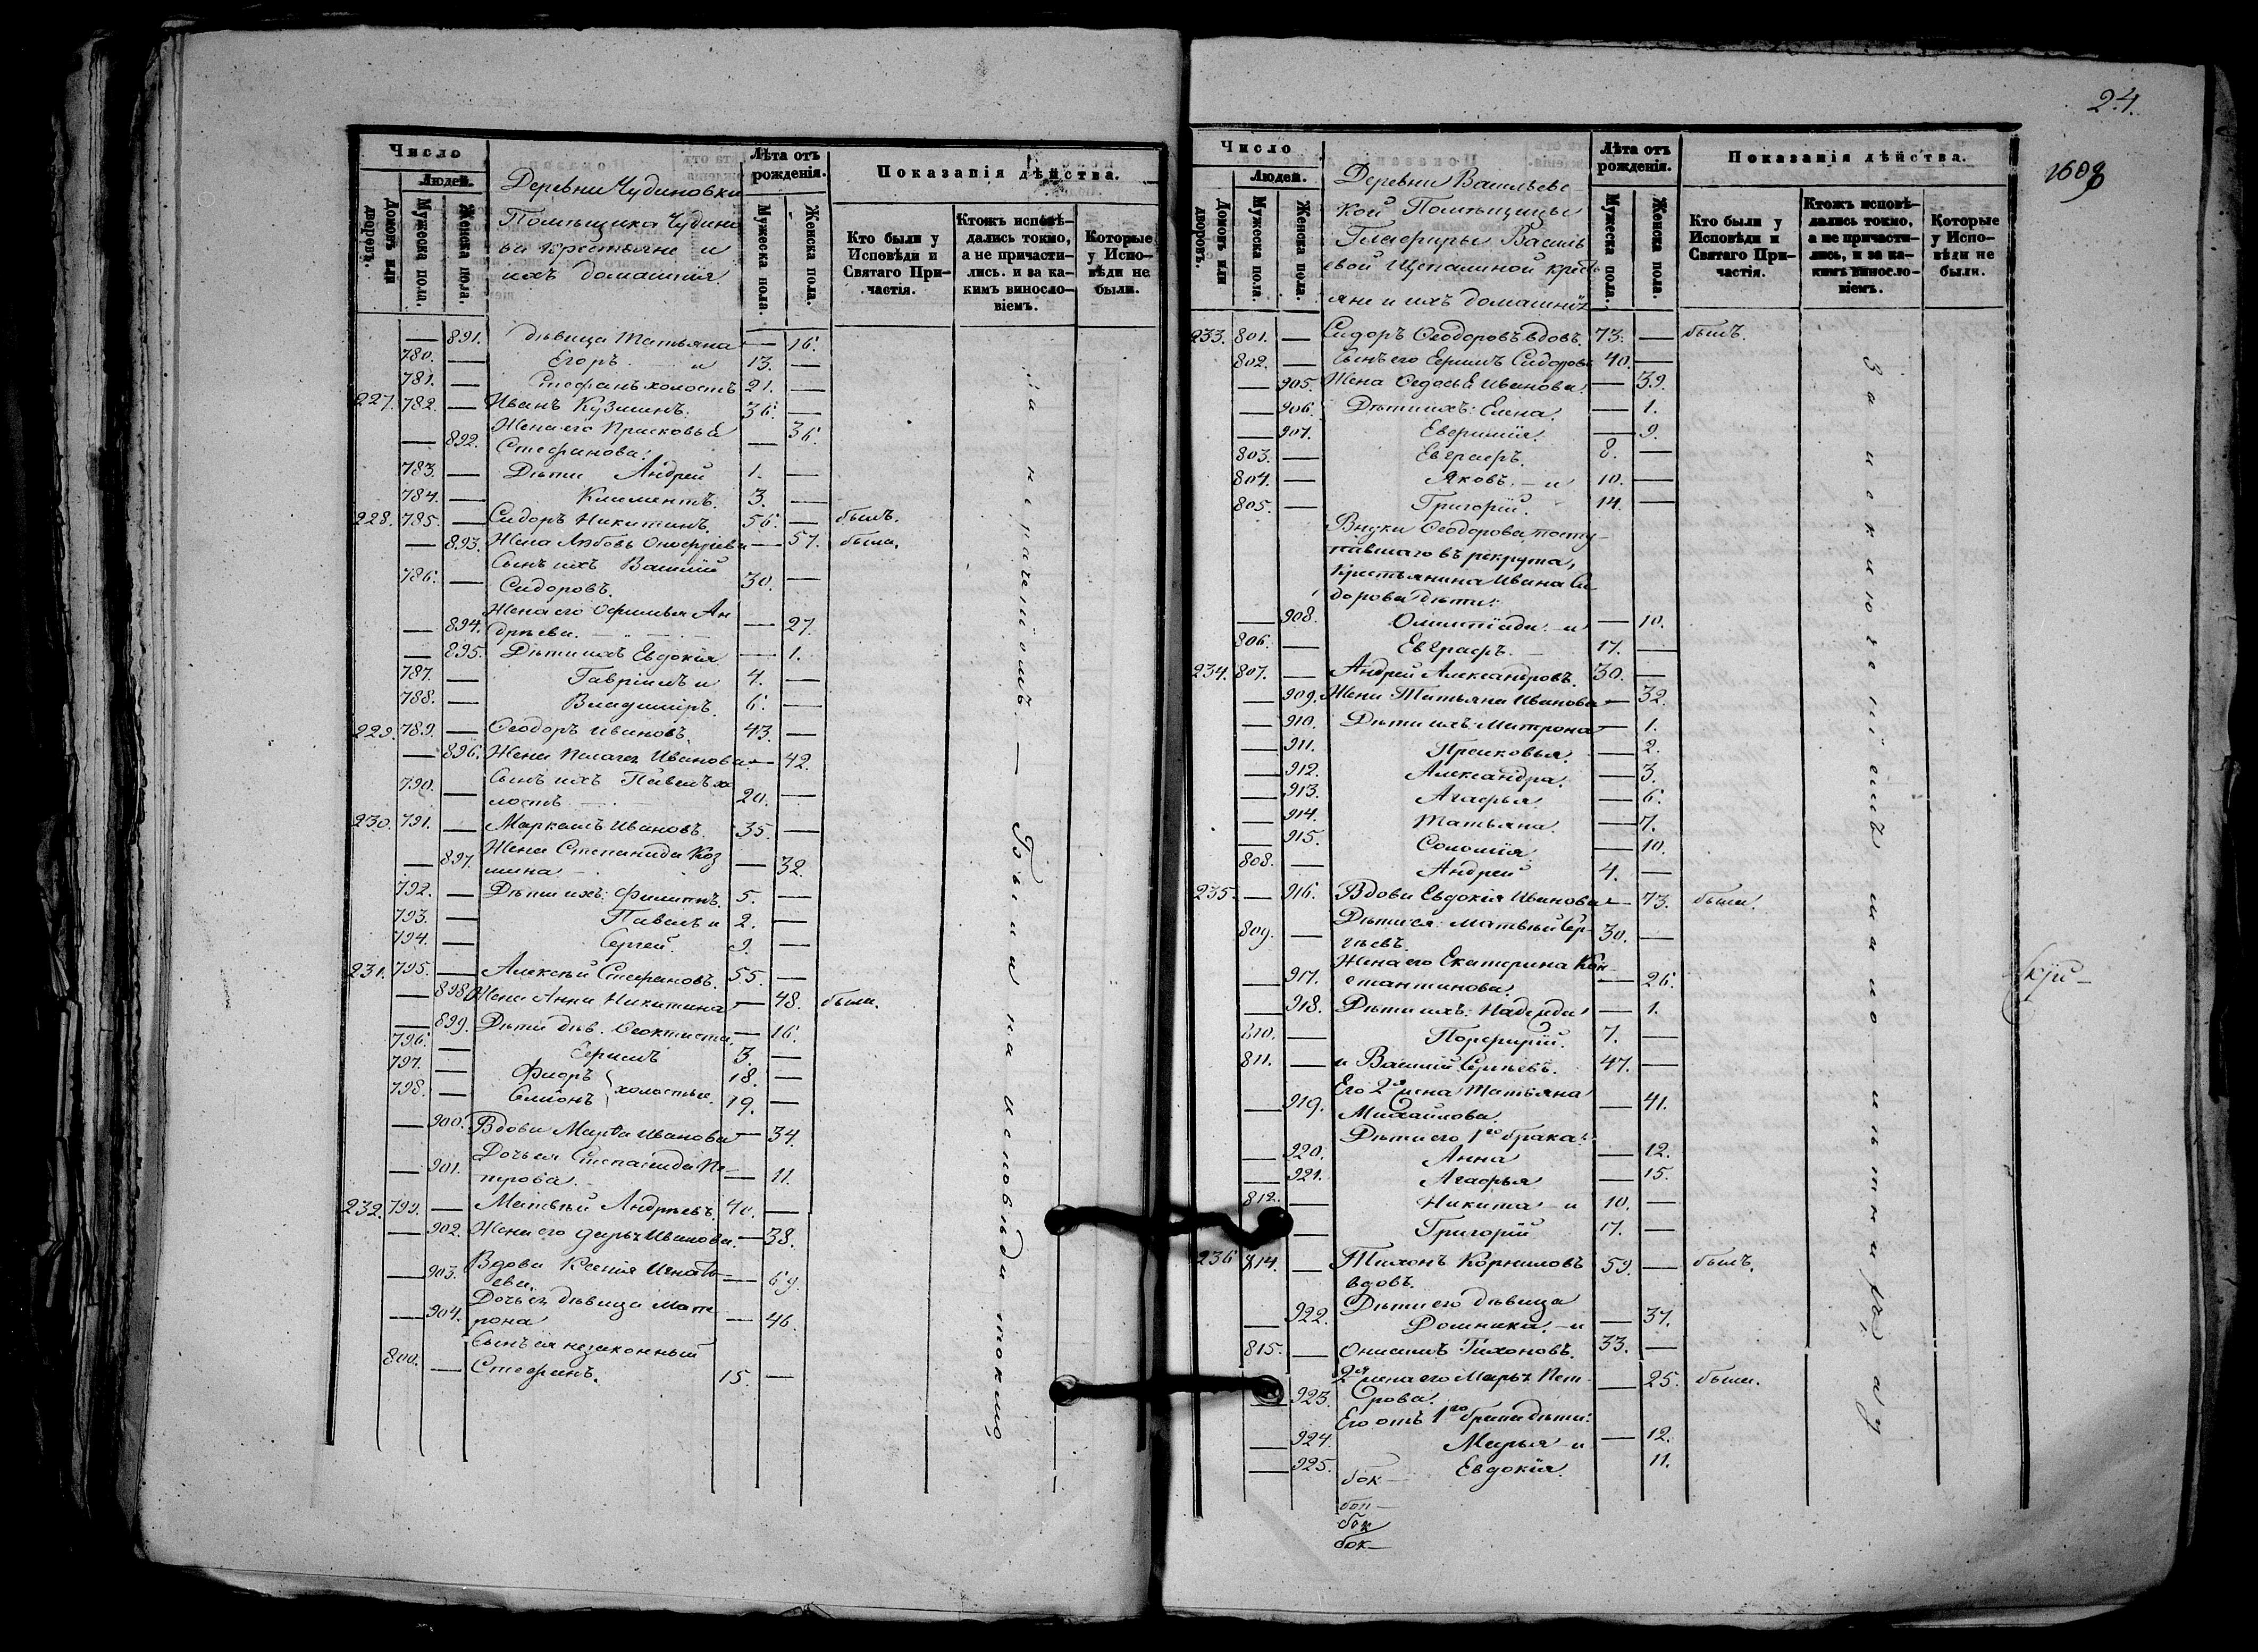 Число
Людей.
Домовъ или дворовъ.
Мужеска пола.
Женска пола.
Деревни Чудиновки
Помѣщика Чудино
ва крестьяне и
ихъ домашнія.
Лѣта отъ рожденія.
Мужеска пола.
Женска пола.
Показанія дѣйства.
Кто были у Исповѣди и Святаго При-частія.
Ктожъ исповѣ-дались токмо, а не причасти-лись. и за ка-кимъ винословіемъ.
Которые у Испо-вѣди не были.
— 891. дѣвица Татьяна — 16.
780. — Егоръ и 13. —
781. — Стефанъ холостъ 21. —
227. 782. — Иванъ Кузминъ. 36. —
— 892. Жена его Прасковья
Стефанова. — 36.
783. — Дѣти Андрей 1. —
784. — Климентъ. 3. —
228. 785. — Сидоръ Никитинъ. 56. — былъ.
— 893. Жена Любовь — 57. была.
786. — Сынъ ихъ Василій
Сидоровъ. 30. —
— 894. Жена его Ан
дрѣева. — 27.
— 895. Дѣти ихъ Евдокія — 1.
787. — Гавріилъ и 4. —
788. — Владиміръ. 6. —
229. 789. — Ѳеодоръ Ивановъ. 43. —
— 896. Жена Ивановa — 42.
790. — Сынъ ихъ Павелъ хо
лостъ 20. —
230. 791. — Ивановъ. 35. —
— 897. Жена Степанида Коз
мина — 32.
792. — Дѣти ихъ: Филиппъ. 5. —
793. — Павелъ и 2. —
794. — Сергей. 9. —
231. 795. — Алексѣй Стефановъ. 55. —
— 898. Жена Анна Никитина — 48. была.
— 899. Дѣти дѣв. Ѳеоктиста. — 16.
796. — 3. —
797. — Флоръ 18. —
798. — холостые. 19. —
— 900. Вдова Марѳа Иванова — 34.
— 901. Дочь ея Степанида Пе-
трова. — 11.
232. 799. — Матвѣй Андрѣевъ. 40. —
— 902. Жена его Дарья Иванова. — 38.
— 903. Вдова Ксенія Игнать
ева. — 69.
— 904. Дочь ея дѣвица Мат
рона — 46.
800. — Сынъ ея незаконный
Стефанъ. 15. —
Были на исповѣди токмо
24.
Число
Людей.
Домовъ или дворовъ.
Мужеска пола.
Женска пола.
Деревни Васильевс
кой Помѣщицы
Глафиры Василь
евой Щепашиной крест
яне и ихъ домашнія
Лѣта отъ рожденія.
Мужеска пола.
Женска пола.
Показанія дѣйства.
Кто были у Исповѣди и Святаго При-частія.
Ктожъ исповѣ-дались токмо, а не причасти-лись, и за ка-кимъ винослo-віемъ.
Которые у Испо-вѣди не были.
233. 801. — Сидоръ Ѳеодоровъ вдовъ. 73. — былъ.
802. — Сынъ его Сидоровъ 40. —
— 905. Жена Ѳедосья Иванова — 39.
— 906. Дѣти ихъ: Елена. — 1.
— 907. — 9.
803. — Евграфъ. 8. —
804. — Яковъ. — и 10. —
805. — Григорій. 14. —
Внуки Ѳеодорова посту-
пившаго въ рекрута,
Крестьянина Ивана Си
дорова дѣти:
— 908. Олимпіада — и — 10.
806. — Евграфъ. 17. —
234. 807. — Андрей Александровъ. 30. —
— 909. Жена Татьяна Иванова — 32.
— 910. Дѣти ихъ: Матрона — 1.
— 911. Прасковья. — 2.
— 912. Александра. — 3.
— 913. Агафья — 6.
— 914. Татьяна. — 7.
— 915. Соломія — 10.
808. — Андрей 4. —
235. — 916. Вдова Евдокія Иванова — 73. была.
809. — Дѣти ея: Матвѣй Сер-
гѣевъ. 30. —
— 917. Жена его Екатерина Кон-
стантинова. — 26.
— 918. Дѣти ихъ: Надежда — 1.
810. — Порфирій. 7. —
811. — и Василій Сергѣевъ. 47. —
— 919. Его 2я жена Татьяна
Михайлова. — 41.
Дѣти его 1го брака:
— 920. Анна — 12.
— 921. Агафья — 15.
812. — Никита — и 10. —
— Григорій 17. —
236 814. — Тихонъ Корниловъ
вдовъ. 59. — былъ.
— 922. Дѣти его дѣвица
Домника. — и — 37.
815. — Онисимъ Тихоновъ. 33. —
— 923. 2я жена его Марья Пет-
рова. — 25. была.
Его отъ 1го брака дѣти:
— 924. Марья и — 12.
— 925. Евдокія. 11.
За исключеніемъ